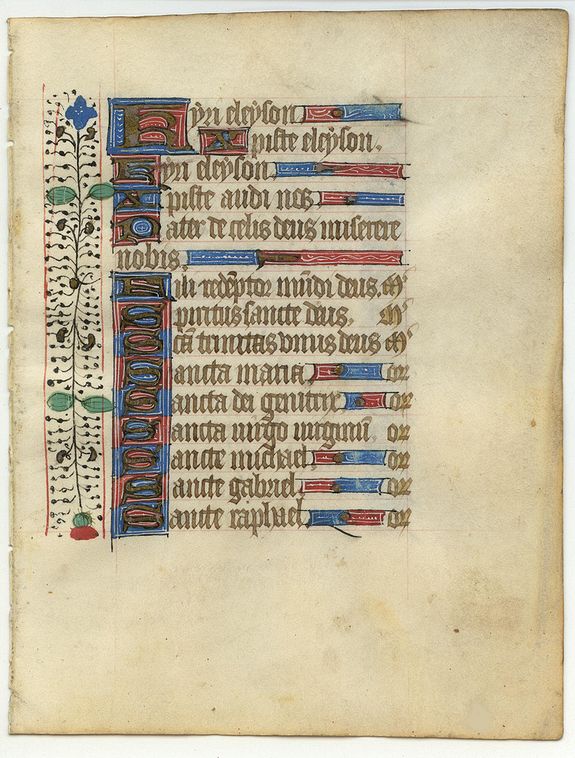 Kyri eleyson
Xpiste eleyson.
Kyri eleyson
Xpiste audi nos
Pater de celis deus miserere
nobis.
Fili redẽptor mũdi deus. M
Spiritus sancte deus. M
Scã trinitas vnus deus M
Sancta maria. or
Sancta dei genitrix or
Sancta uirgo uirginũ. or
Sancte michael. or
Sancte gabriel. or
Sancte raphael. or